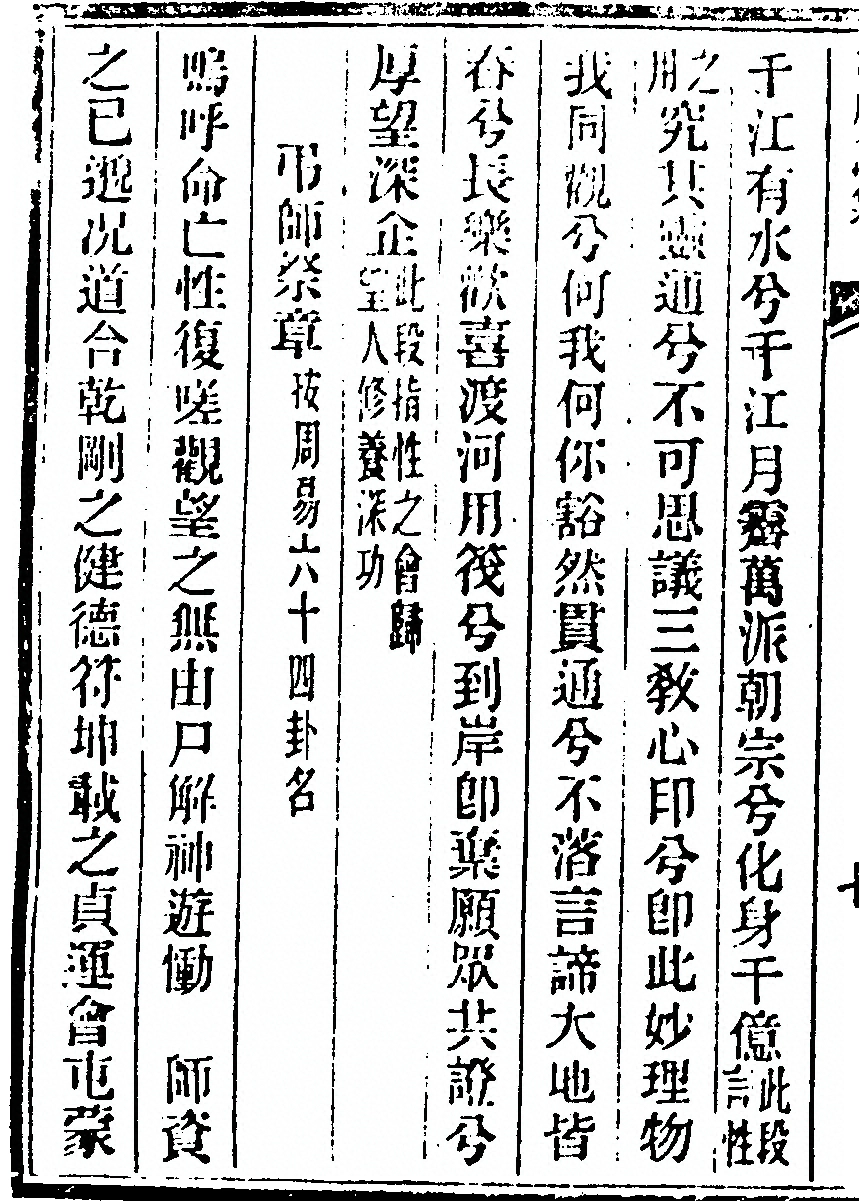 千江有水兮千江月露萬派朝宗兮化身千億此段言性
之用究其靈通兮不可思議三教心印兮卽此妙理物
我同觀兮何我何你豁然貫通兮不落言諦大地皆
春兮長樂歡喜渡河用筏兮到岸卽棄願眾共證兮
厚望深企此段指性之會歸望人修養深功
弔師祭章按周易六十四卦名
嗚呼命亡性復嗟觀望之無由尸解神遊慟　師資
之已遯况道合乾剛之健德符坤載之貞運會屯蒙